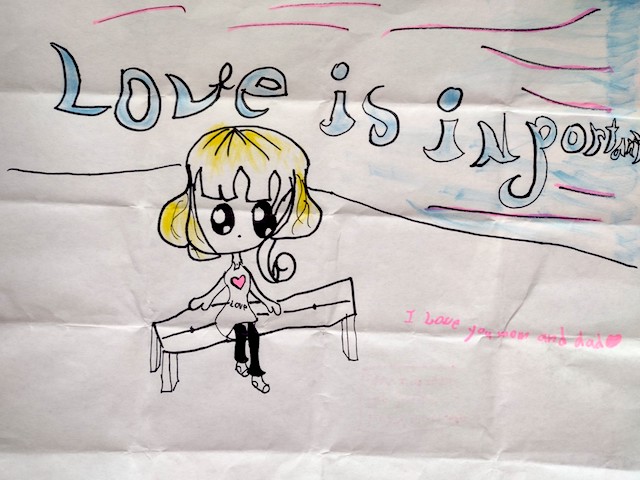 Love is inportant
LOVE
I Love you mom and dad